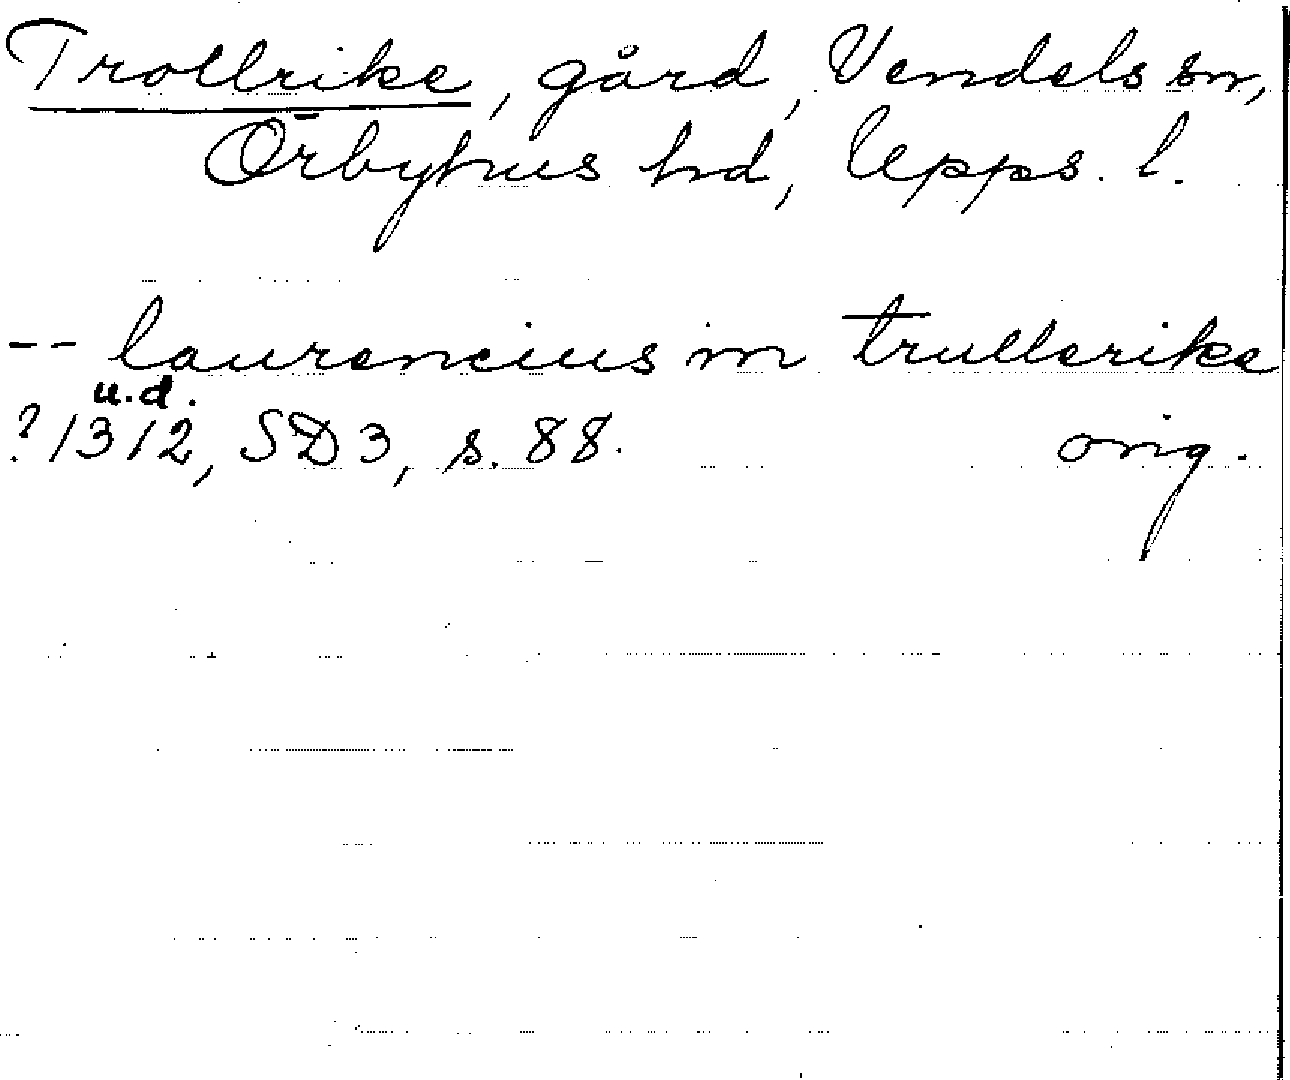 Trollrike, gård, Vendels sn,
Örbyhus hd, Upps. l.
-- laurencius in trullerike
u.d.
? 1312, SD 3, s. 88. orig.